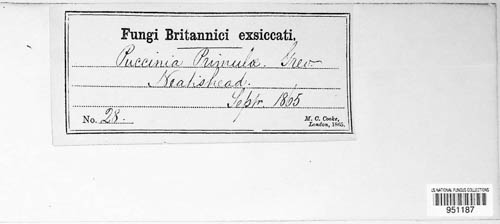 Fungi Britannici exsiccati,
Puccinia Primulæ. Grev.
Neatishead.
Septr. 1865
No. 28.
M. C. Cooke,
London, 1865.
US NATIONAL FUNGUS COLLECTIONS
951187